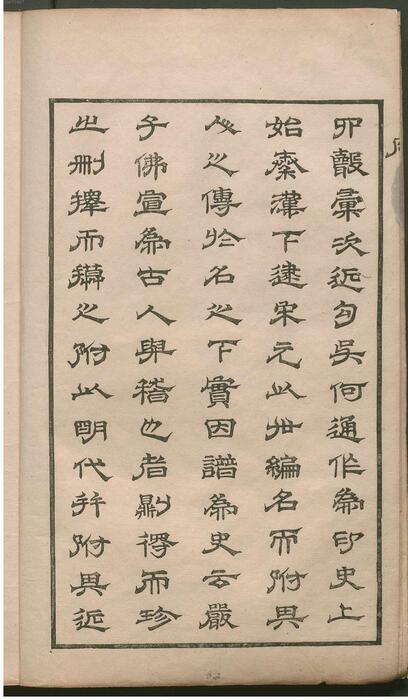 卯彙次近句吳何通作為印史上
始秦漢下逮宋元以世編名而附其
人之傳於名之下實因譜為史云嚴
子佛宣為古人與稽也者得而珍
之刪擇而之附以明代并附其近